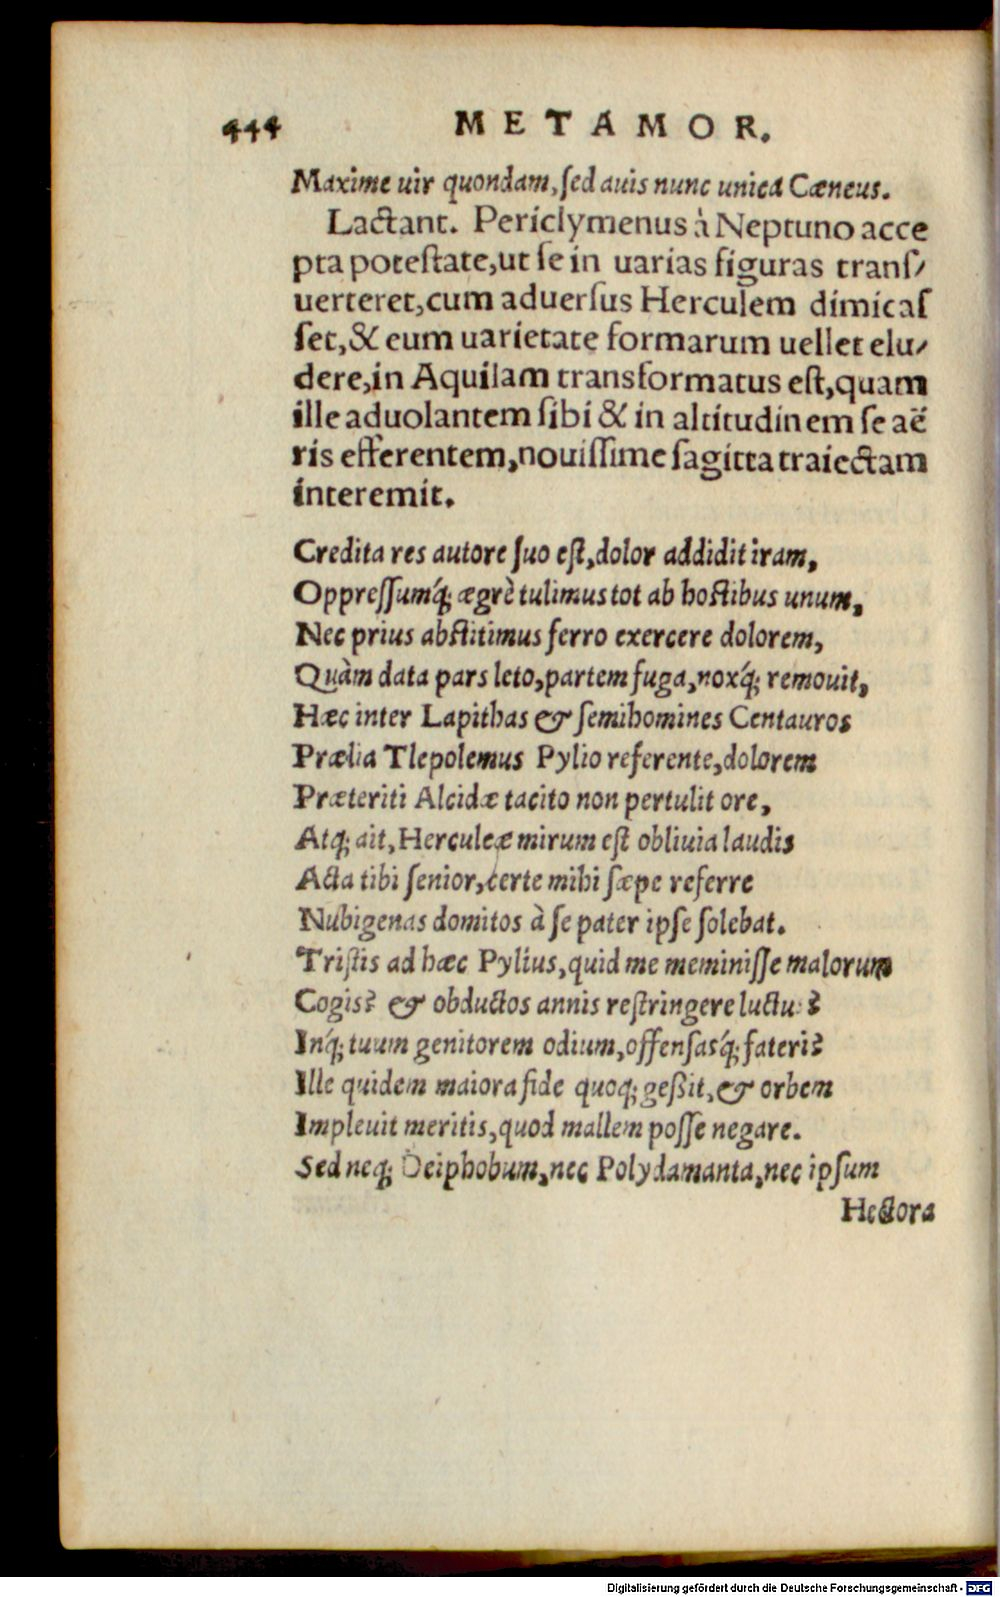 444 METAMOR.
Maxime uir quondam, sed auis nunc unica Cæneus.
Lactant. Periclymenus à Neptuno acce
pta potestate, ut se in uarias figuras trans/
uerteret, cum aduersus Herculem dimicas
set, & eum uarietate formarum uellet elu/
dere, in Aquilam transformatus est, quam
ille aduolantem sibi & in altitudinem se aë
ris efferentem, nouissime sagitta traiectam
interemit.
Credita res autore suo est, dolor addidit iram,
Oppressumq́; ægrè tulimus tot ab hostibus unum,
Nec prius abstitimus ferro exercere dolorem,
Quàm data pars leto, partem fuga, noxq́; remouit,
Hæc inter Lapithas & semihomines Centauros
Prælia Tlepolemus Pylio referente, dolorem
Præteriti Alcidæ tacito non pertulit ore,
Atq; ait, Herculeæ mirum est obliuia laudis
Acta tibi senior, certe mihi sæpe referre
Nubigenas domitos à se pater ipse solebat.
Tristis ad hæc Pylius, quid me meminisse malorum
Cogis? & obductos annis restringere luctu ?
Inq́; tuum genitorem odium, offensasq́; fateri?
Ille quidem maiora fide quoq; geßit, & orbem
Impleuit meritis, quod mallem posse negare.
Sed neq; Deiphobum, nec Polydamanta, nec ipsum
Hectora
Digitalisierung gefördert durch die Deutsche Forschungsgemeinschaft - DFG